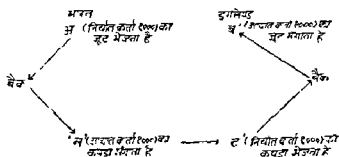 भारत
अ (निर्यात कर्ता १०००) का
जूट भेजता है
इंगलैण्ड
ब' (आयात कर्ता १०००) का
जूट मंगाता है
बैंक
बैंक
'स' (आयात कर्ता १०००) का
कपड़ा मंगाता है
द' (निर्यात कर्ता १०००) का
कपड़ा भेजता है